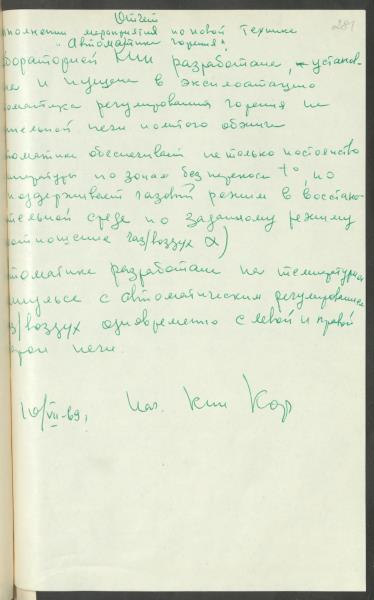 Отчет
281
ыполнении мероприятия по новой технике
"Автоматика горения".
бораторией КИП разработана, установ-
на и пущена в эксплоатацию
оматика регулирования горения на
тельной печи политого обжига
томатика обеспечивает не только постоянство
пературы по зонам без переноса t°, но
поддерживает газовый режим в восстано-
тельной среде по заданному режиму
соотношение газ/воздух α)
томатика разработана на температурном
мпульсе с автоматическим регулированием
з/воздух одновременно с левой и правой
орон печи.
10/VII-69г Нач. КИП